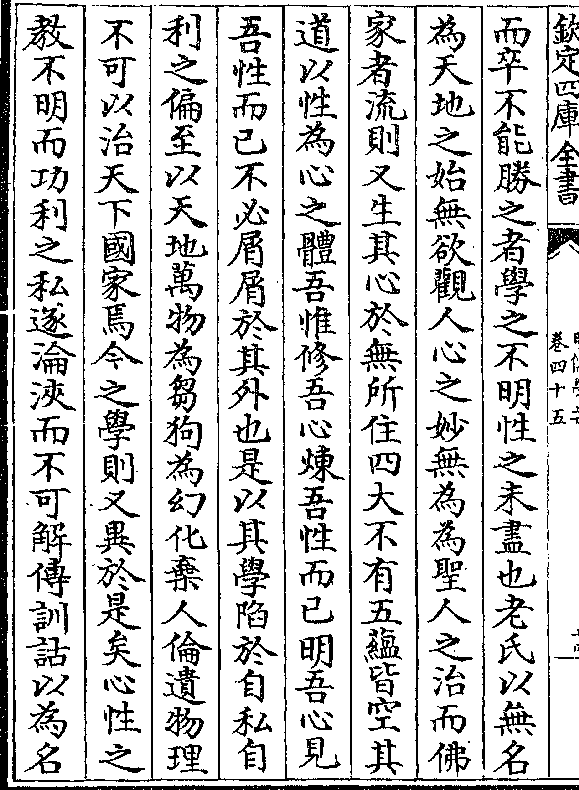 欽定四庫全書
卷四十五
而卒不能勝之者學之不明性之未盡也老氏以無名
為天地之始無欲觀人心之妙無為為聖人之治而佛
家者流則又生其心於無所住四大不有五蘊皆空其
道以性為心之體吾惟修吾心煉吾性而已明吾心見
吾性而已不必屑屑於其外也是以其學陷於自私自
利之偏至以天地萬物為芻狗為幻化棄人倫遺物理
不可以治天下國家焉今之學則又異於是矣心性之
教不明而功利之私遂淪浹而不可解傳訓詁以為名